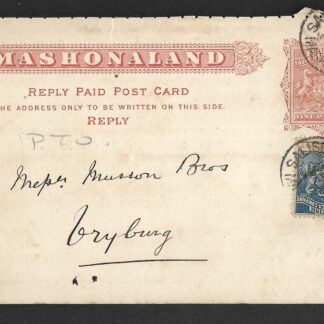 MASHONALAND
REPLY PAID POST CARD
HE ADDRESS ONLY TO BE WRITTEN ON THIS SIDE.
REPLY
P.T.O.
Messrs Musson Bros
Vryburg